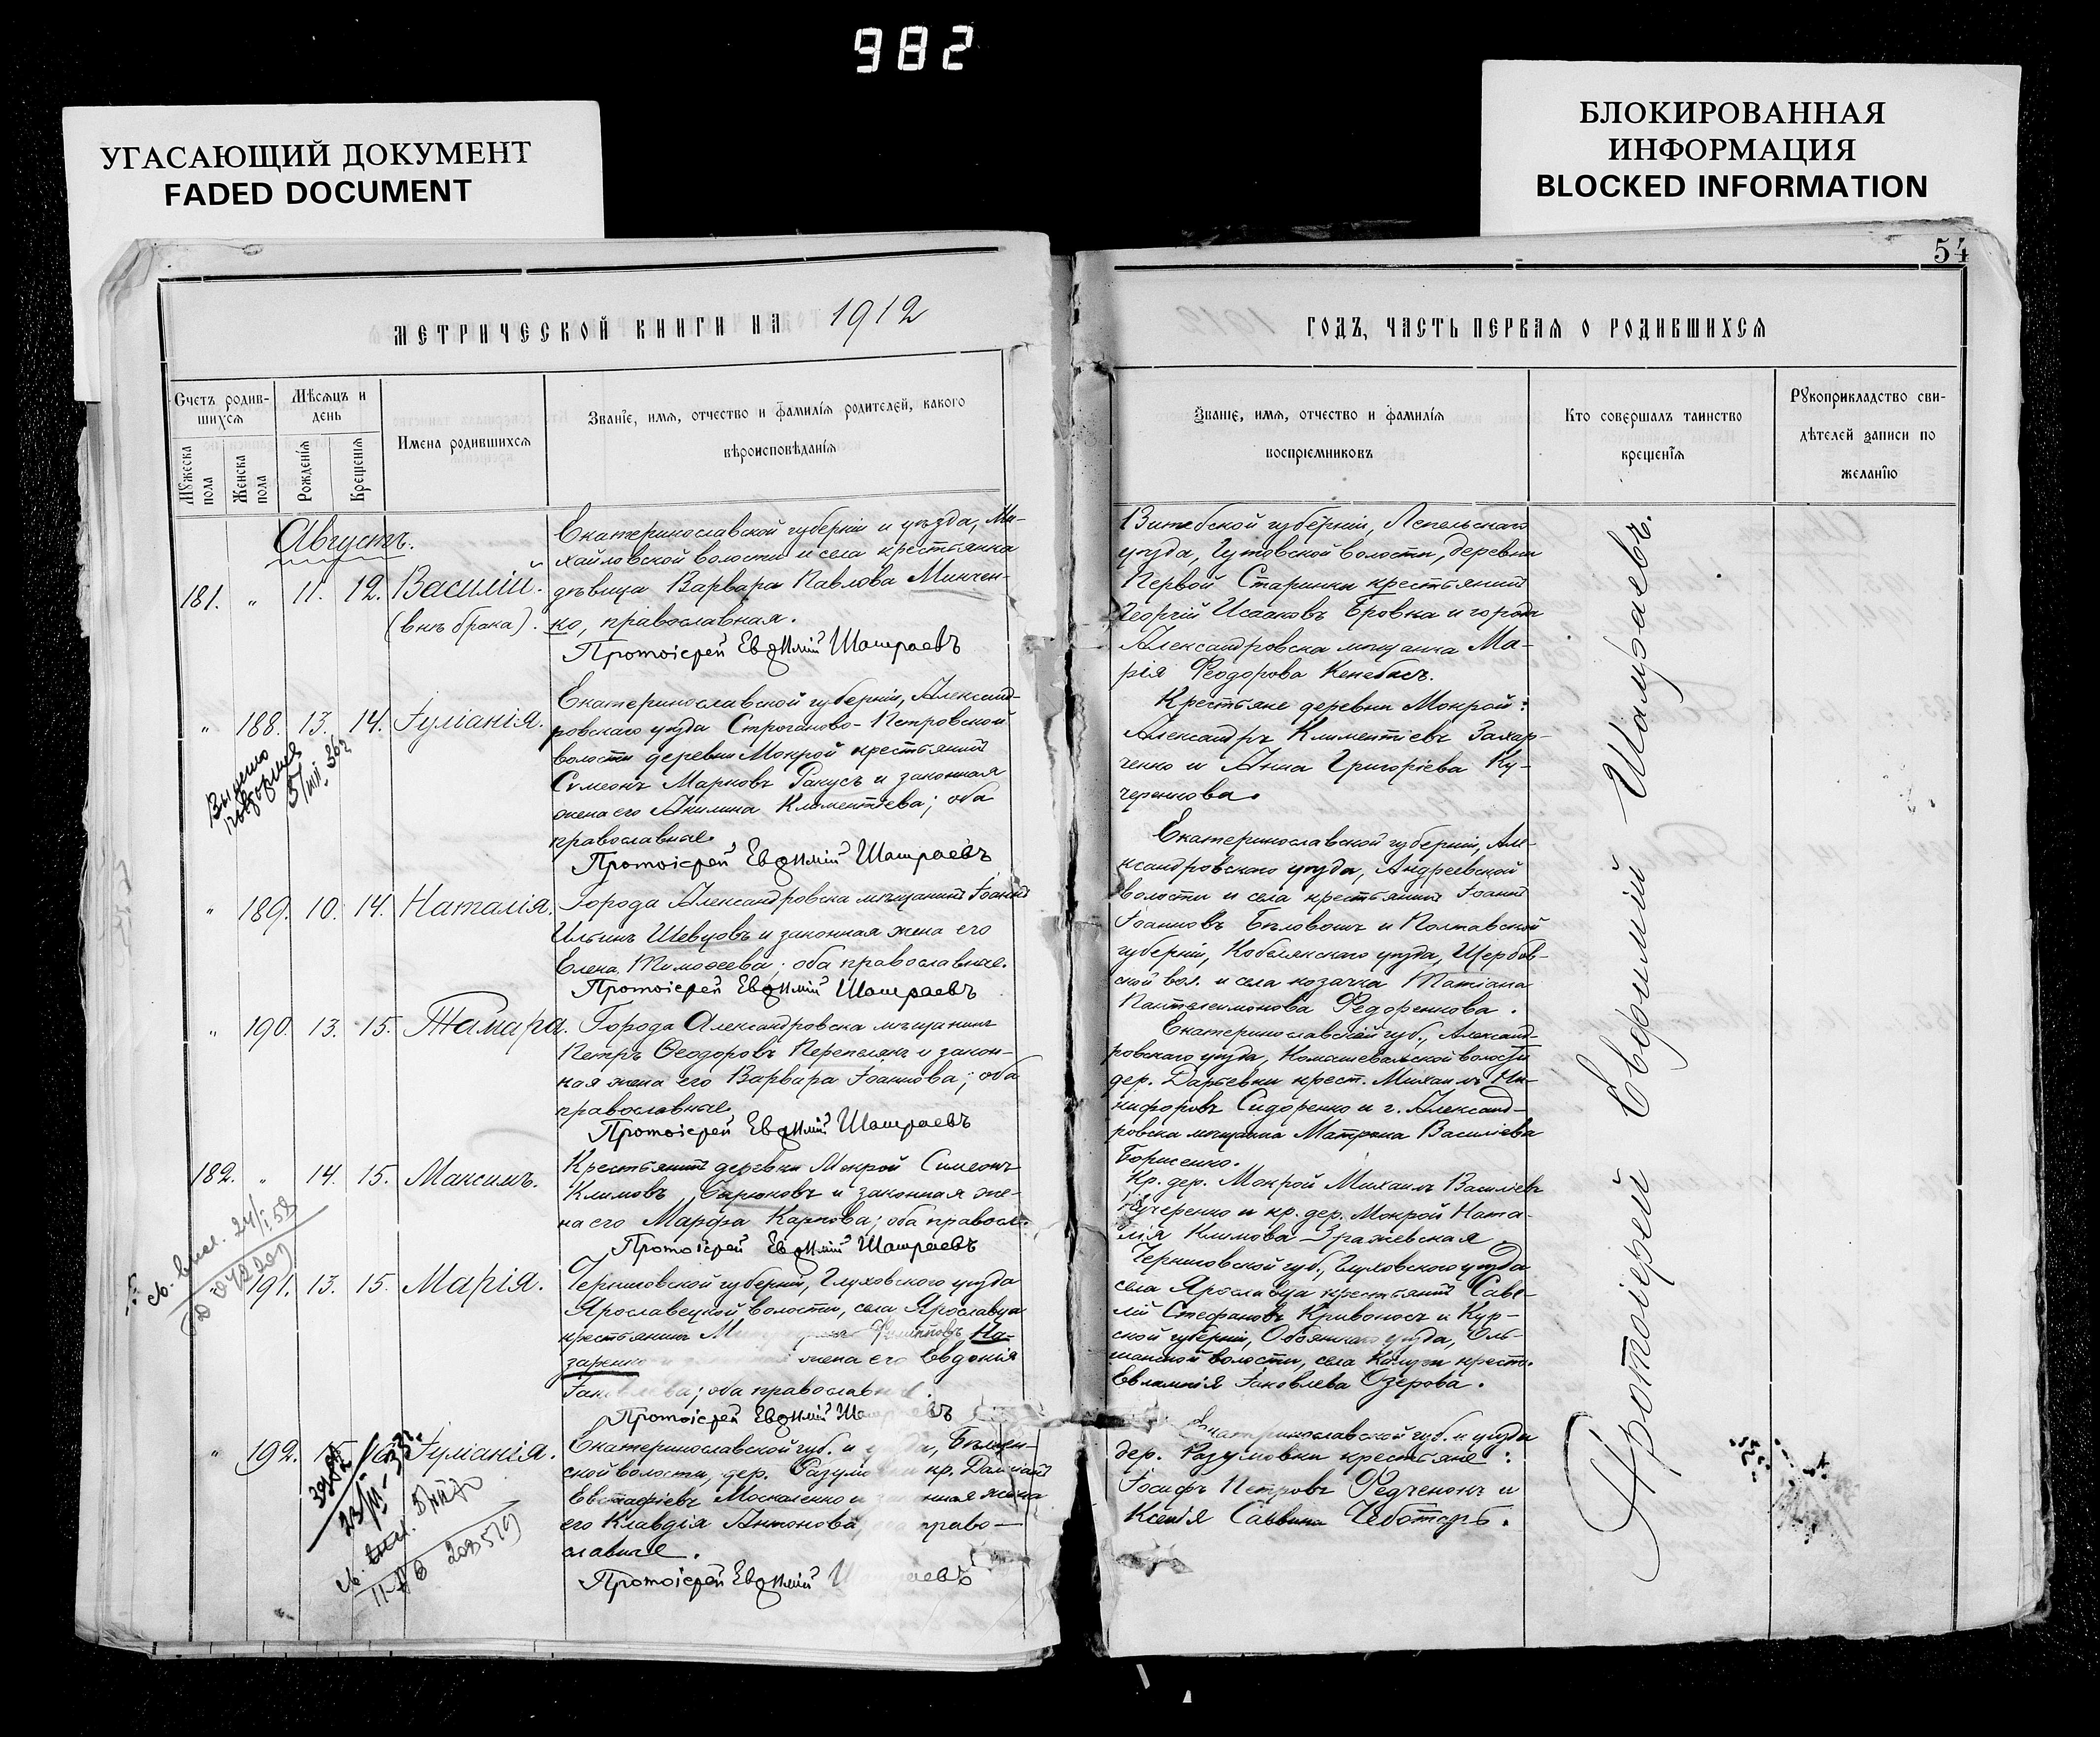 982
УГАСАЮЩИЙ ДОКУМЕНТ
FADED DOCUMENT
БЛОКИРОВАННАЯ
ИНФОРМАЦИЯ
BLOCKED INFORMATION
54
МЕТРИЧЕСКОЙ КНИГИ НА 1912
ГОДЪ, ЧАСТЬ ПЕРВАЯ О РОДИВШИХСЯ
Счетъ родив-
шихся
Мѣсяцъ и
день
Мужеска пола
Женска пола
Рожденія
Крещенія
Имена родившихся
Званіе, имя, отчество и фамилія родителей, какого
вѣроисповѣданія
Званіе, имя, отчество и фамилія
воспріемниковъ
Кто совершалъ таинство
крещенія
Рукоприкладство сви-
дѣтелей записи по
желанію
Августъ.
181. " 11. 12. Василій.
(внѣ брака).
Екатеринославской губерніи и уѣзда, Ми-
хайловской волости и села крестьянка
дѣвица Варвара Павлова Минчен-
ко, православная.
Протоіерей Евѳимій Шатраевъ
Витебской губерніи, Лепельскаго
уѣзда, Гутовской волости, деревни
Первой Старинки крестьянинъ
Георгій Исааковъ Бровка и города
Александровска мѣщанка Ма-
рія Ѳеодорова
" 188. 13. 14. Іуліанія.
Екатеринославской губерніи, Александ-
ровскаго уѣзда Строганово-Петровской
волости деревни Мокрой крестьянинъ
Симеонъ Марковъ и законная
жена его Акилина Климентіева; оба
православные.
Протоіерей Евѳимій Шатраевъ
Крестьяне деревни Мокрой:
Александръ Климентіевъ Захар-
ченко и Анна Григоріева Ку-
черенкова.
" 189. 10. 14. Наталія.
Города Александровска мѣщанинъ Іоаннъ
Ильинъ Шевцовъ и законная жена его
Елена Тимоѳеева; оба православные.
Протоіерей Евѳимій Шатраевъ
Екатеринославской губерніи, Але-
ксандровскаго уѣзда, Андреевской
волости и села крестьянинъ Іоаннъ
Іоанновъ и Полтавской
губерніи, Кобелякскаго уѣзда,
ской вол. и села козачка Татіана
Пантелеимонова Федоренкова.
" 190. 13. 15. Тамара.
Города Александровска мѣщанинъ
Петръ Ѳеодоровъ Перепелякъ и закон-
ная жена его Варвара Іоаннова; оба
православные.
Протоіерей Евѳимій Шатраевъ
Екатеринославской губ., Александ-
ровскаго уѣзда, волости
дер. Дарьевки крест. Михаилъ Ни-
кифоровъ Сидоренко и г. Александ-
ровска мѣщанка Матрона Василіева
Борисенко.
182. " 14. 15. Максимъ.
Крестьянинъ деревни Мокрой Симеонъ
Климовъ Бирюковъ и законная же-
на его Марфа Карпова; оба правосл.
Протоіерей Евѳимій Шатраевъ
Кр. дер. Мокрой Михаилъ Василіевъ
Кучеренко и кр. дер. Мокрой Ната-
лія Климова Зражевская.
" 191. 13. 15. Марія.
Черниговской губерніи, Глуховского уѣзда
Ярославецкой волости, села Ярославца
крестьянинъ Филипповъ На-
заренко и жена его Евдокія
оба православные.
Протоіерей Евѳимій
Черниговской губ., Глуховского уѣзда
села Ярославца крестьянинъ Саве-
лій Стефановъ Кривоносъ и Кур-
ской губерніи, Обоянскаго уѣзда,
волости, села крест.
Евлампія Іаковлева Озерова.
" 192. Іуліанія.
Екатеринославской губ. и уѣзда, Бѣлен-
ской волости, дер. Разумовки кр. Даміанъ
Евстафіевъ Москаленко и законная жена
его Клавдія Антонова право-
славные.
Протоіерей Евѳимій
Екатеринославской губ. и уѣзда
дер. Разумовки крестьяне:
Іосифъ Петровъ Федченокъ и
Ксенія Саввина Чеботарь.
Протоіерей Евѳимій Шатраевъ.